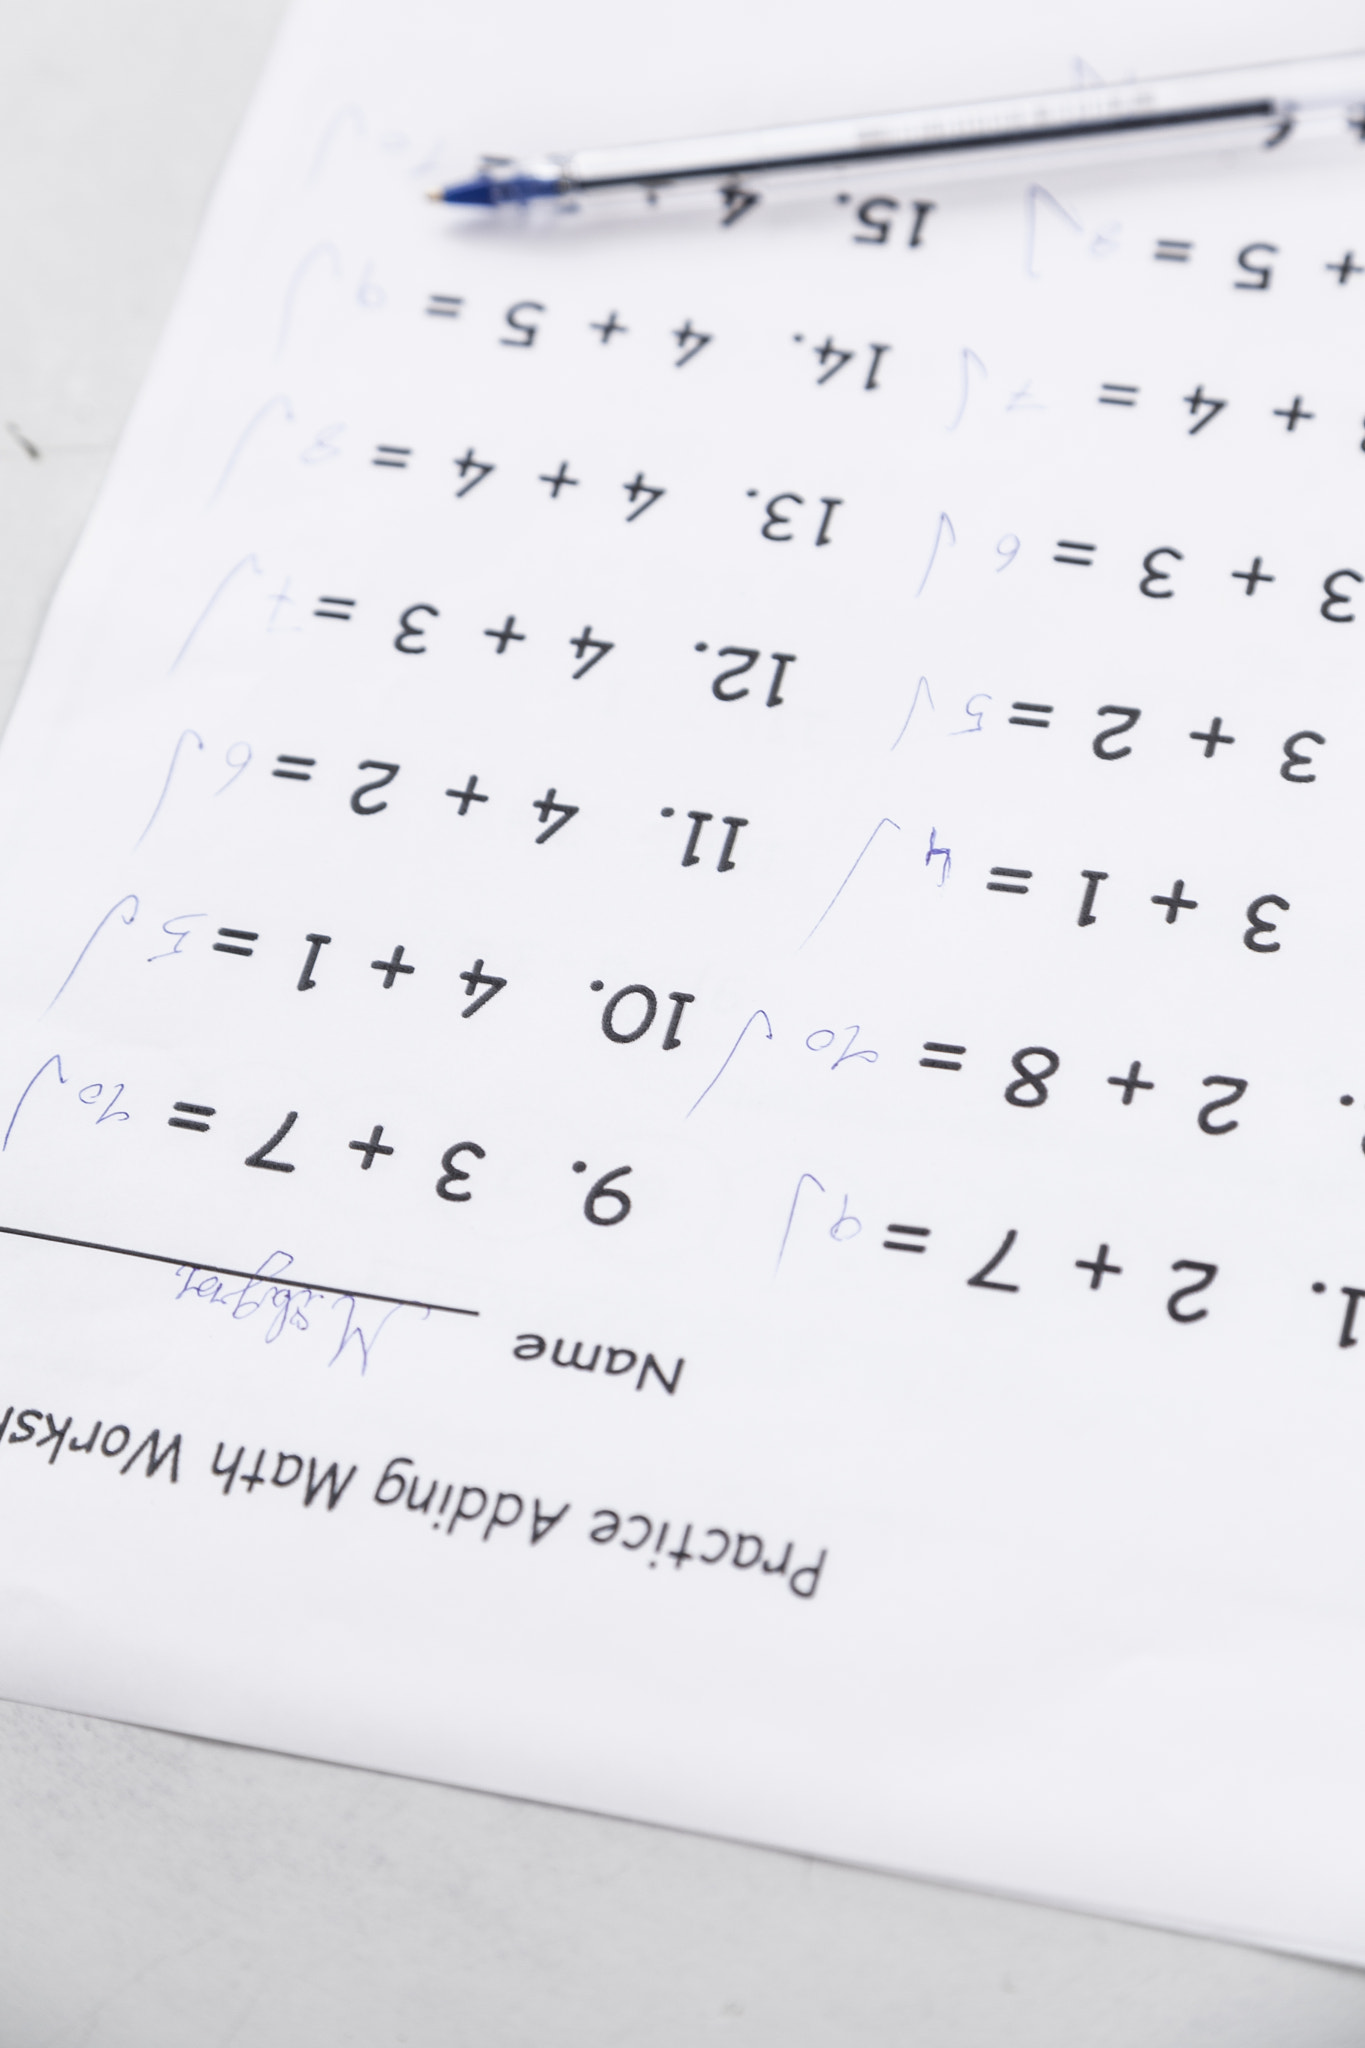 Practice Adding Math Worksh
Name
1. 2 + 7 = 9
2 + 8 = 10
3 + 1 = 4
3 + 2 = 5
3 + 3 = 6
+ 4 = 7
+ 5 = 8
9. 3 + 7 = 10
10. 4 + 1 = 5
11. 4 + 2 = 6
12. 4 + 3 = 7
13. 4 + 4 = 8
14. 4 + 5 = 9
15. 4